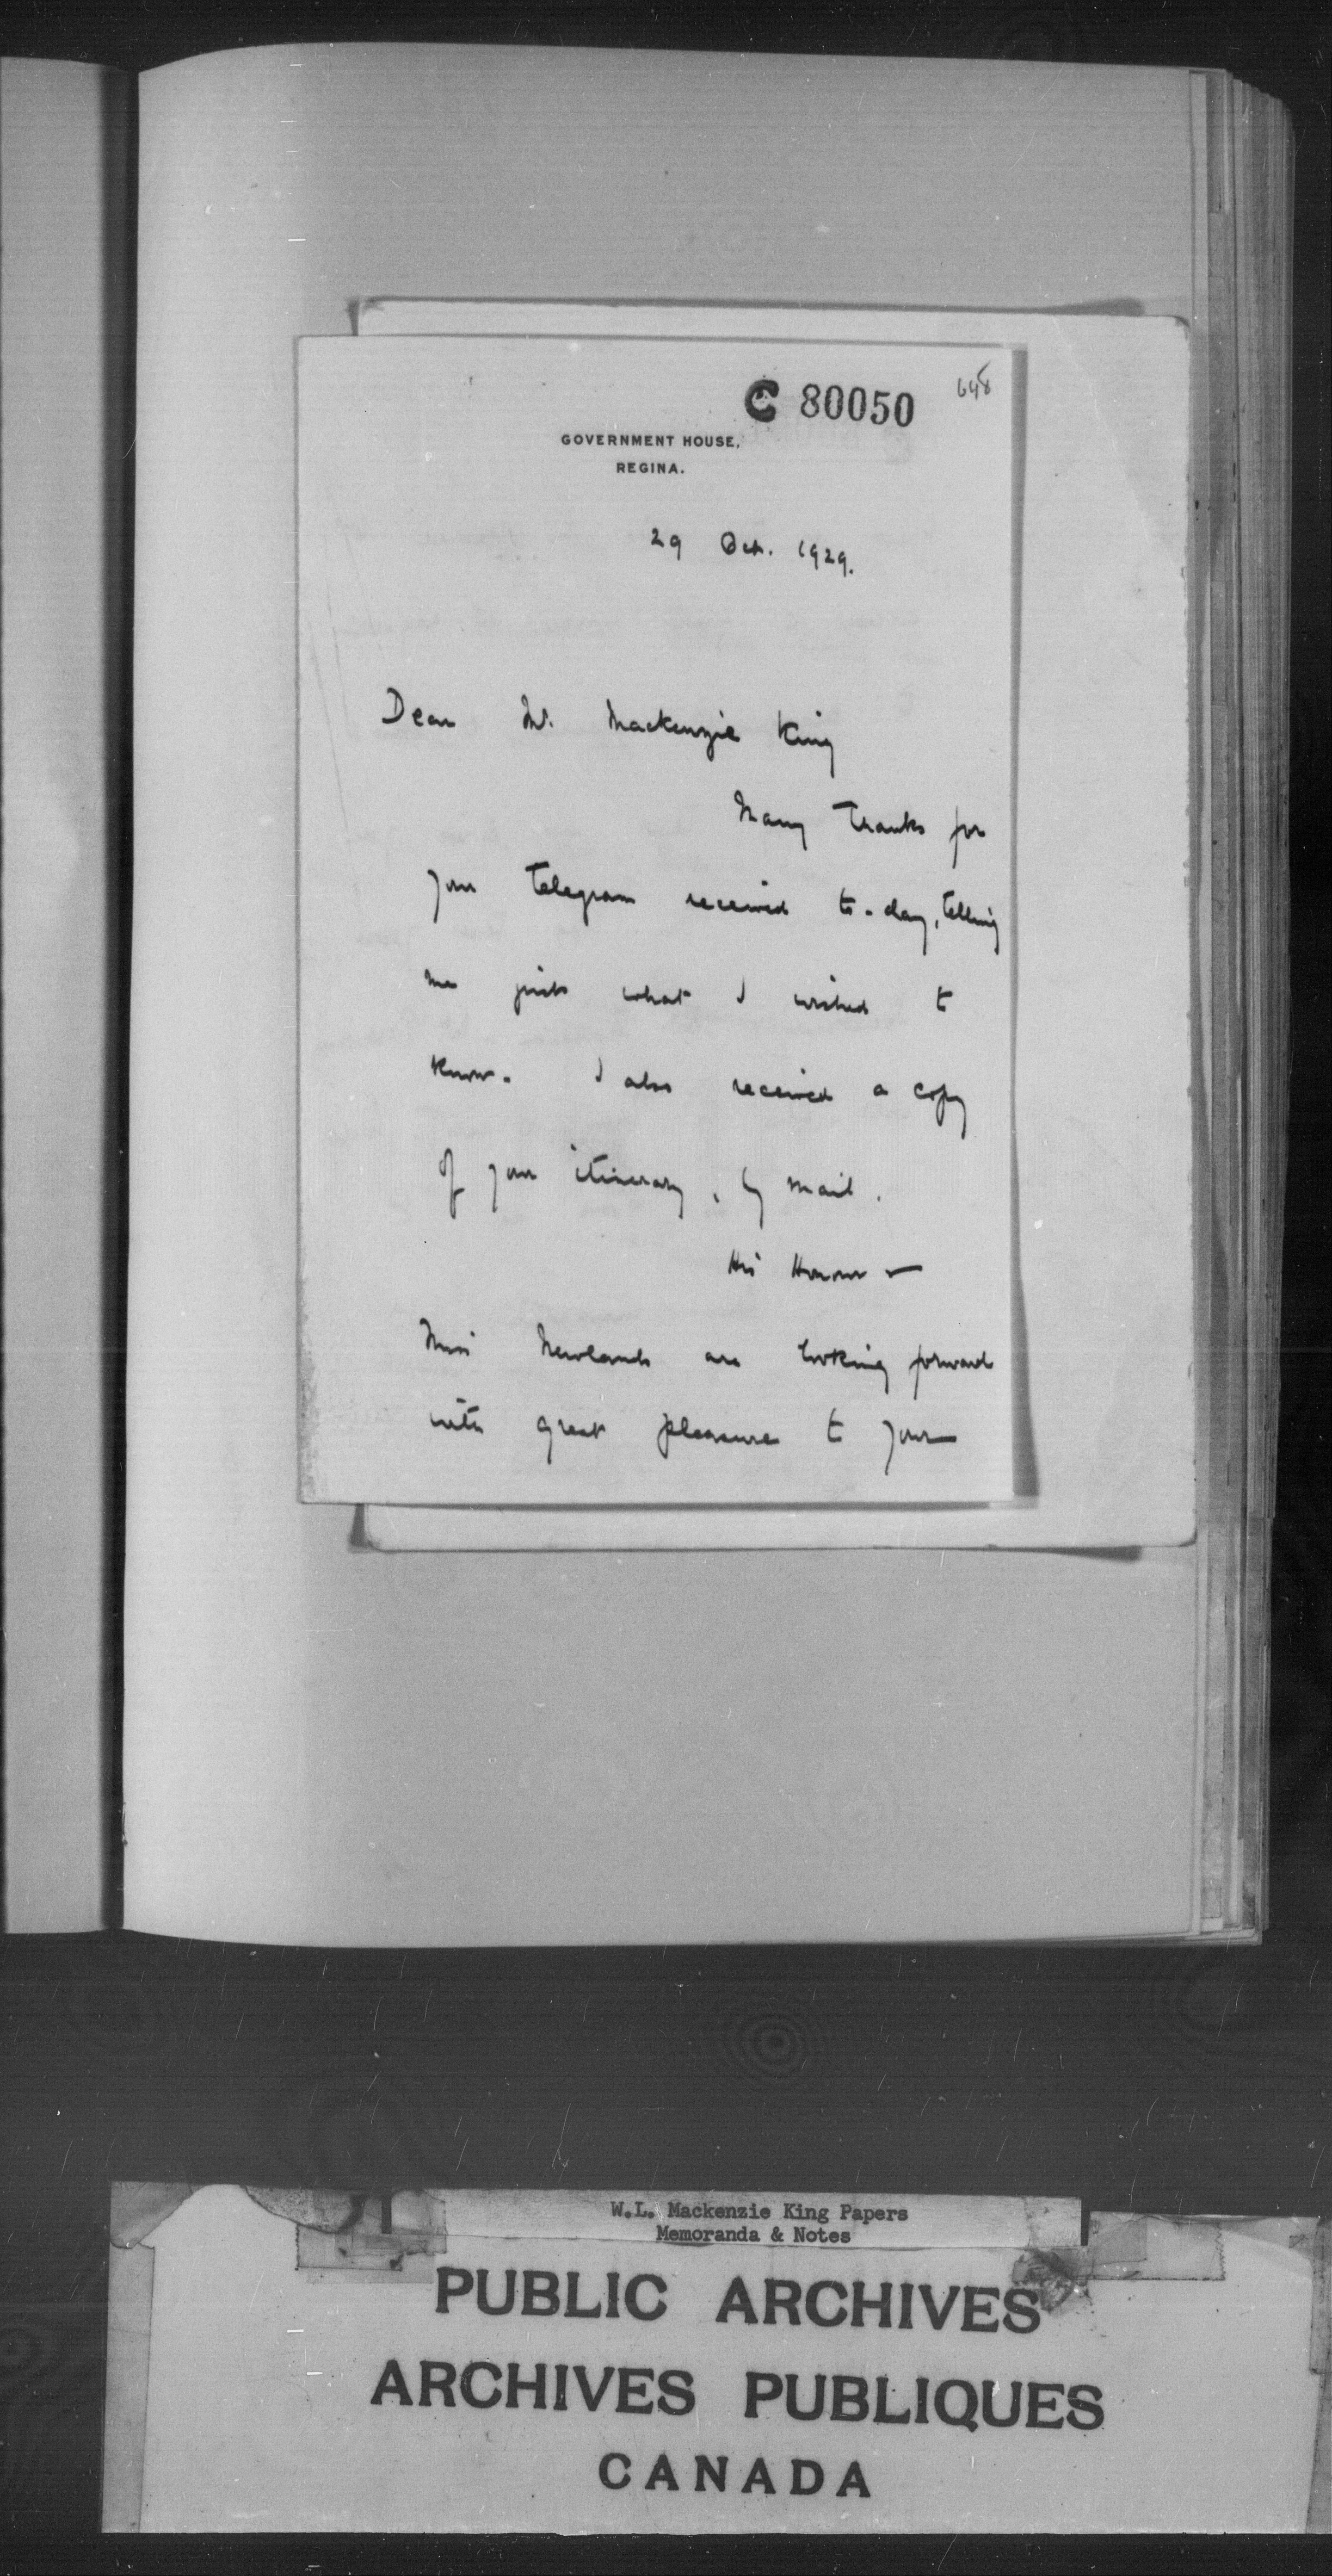 C 80050
648
GOVERNMENT HOUSE,
REGINA.
29 Oct. 1929.
Dear Mr. Mackenzie King
Many thanks for
your telegram received to-day, telling
me just what I wished to
know. I also received a copy
of your itinerary, by mail.
His Honour &
Miss Newlands are looking forward
with great pleasure to your
W.L. Mackenzie King Papers
Memoranda & Notes
PUBLIC ARCHIVES
ARCHIVES PUBLIQUES
CANADA